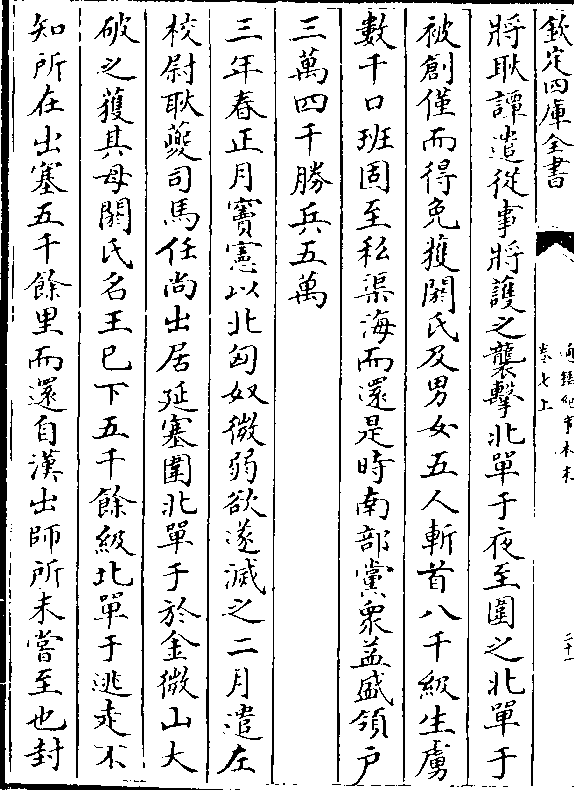 欽定四庫全書
通鑑紀事本末
卷七上
二十一
將耿譚遣從事將護之襲擊北單于夜至圍之北單于
被創僅而得免獲閼氏及男女五人斬首八千級生虜
數千口班固至私渠海而還是時南部黨衆益盛領户
三萬四千勝兵五萬
三年春正月竇憲以北匈奴微弱欲遂滅之二月遣左
校尉耿夔司馬任尚出居延塞圍北單于於金微山大
破之獲其母閼氏名王已下五千餘級北單于逃走不
知所在出塞五千餘里而還自漢出師所未嘗至也封